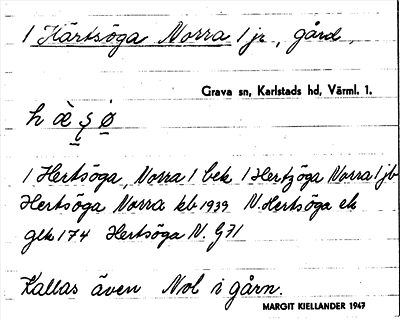 / Härtsöga Norra / jr, gård,
Grava sn, Karlstads hd, Värml. l.
h æ̀ ş ø
/ Hertsöga, Norra / bek / Hertzöga Norra / jb
Hertsöga Norra kb 1939 N. Hertsöga ek
glk 174 Hertsöga N. G71
Kallas även Nol i gårn.
MARGIT KIELLANDER 1947